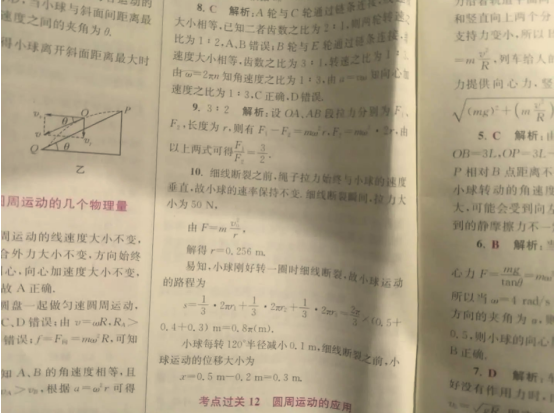 当小球与斜面间距离最
之间的夹角为θ.
得小球离开斜面距离最大时
Q
P
θ
v
Q
θ
乙
圆周运动的几个物理量
周运动的线速度大小不变,
合外力大小不变,方向始终
心,向心加速度大小不变,
故 A 正确.
圆盘一起做匀速圆周运动,
C、D 错误;由 v=ωR,
错误;
可知
知 A、B 的角速度相等,且
根据 a=ω²r 可得
8. C 解析:A 轮与 C 轮通过链条连接,
大小相等,已知二者齿数之比为 2∶1,则两轮转速之
比为 1∶2,A、B 错误;B 轮与 E 轮通过链条连接,
速度大小相等,齿数之比为 3∶1,转速之比为
由 ω=2πn 知角速度之比为 1∶3,由
知向心加
速度之比为 1∶3,C 正确,D 错误.
9. 3∶2 解析:设 OA、AB 段拉力分别为 F₁、
F₂,长度为 r,则有 F₁-F₂=mω²r,F₂=mω²·2r,由
以上两式可得 F₁/F₂=3/2.
10. 细线断裂之前,绳子拉力始终与小球的速度
垂直,故小球的速率保持不变.细线断裂瞬间,拉力大
小为 50 N,
由 F=m
解得 r=0.256 m.
易知,小球刚好转一圈时细线断裂,故小球运动
的路程为
s=1/3·2πr₁+1/3·2πr₂+1/3·2πr₃=2π/3×(0.5+
0.4+0.3) m=0.8π(m).
小球每转 120°半径减小 0.1 m,细线断裂之前,小
球运动的位移大小为
x=0.5 m-0.2 m=0.3 m.
考点过关 12 圆周运动的应用
和竖直向上两个分
支持力变小,所以
列车给人的
力提供向心力,竖
5. C 解析:
OB=3L,OP=3L
P 相对 B 点距离不
小球转动的角速度
大,可能会受到向
到的静摩擦力不一
6. B 解析:
心力 F=mg/tanθ=
所以当 ω=4 rad/s
方向的夹角为
0.5,则小球的向心
B 正确.
7. D 解析:
好没有作用力时,